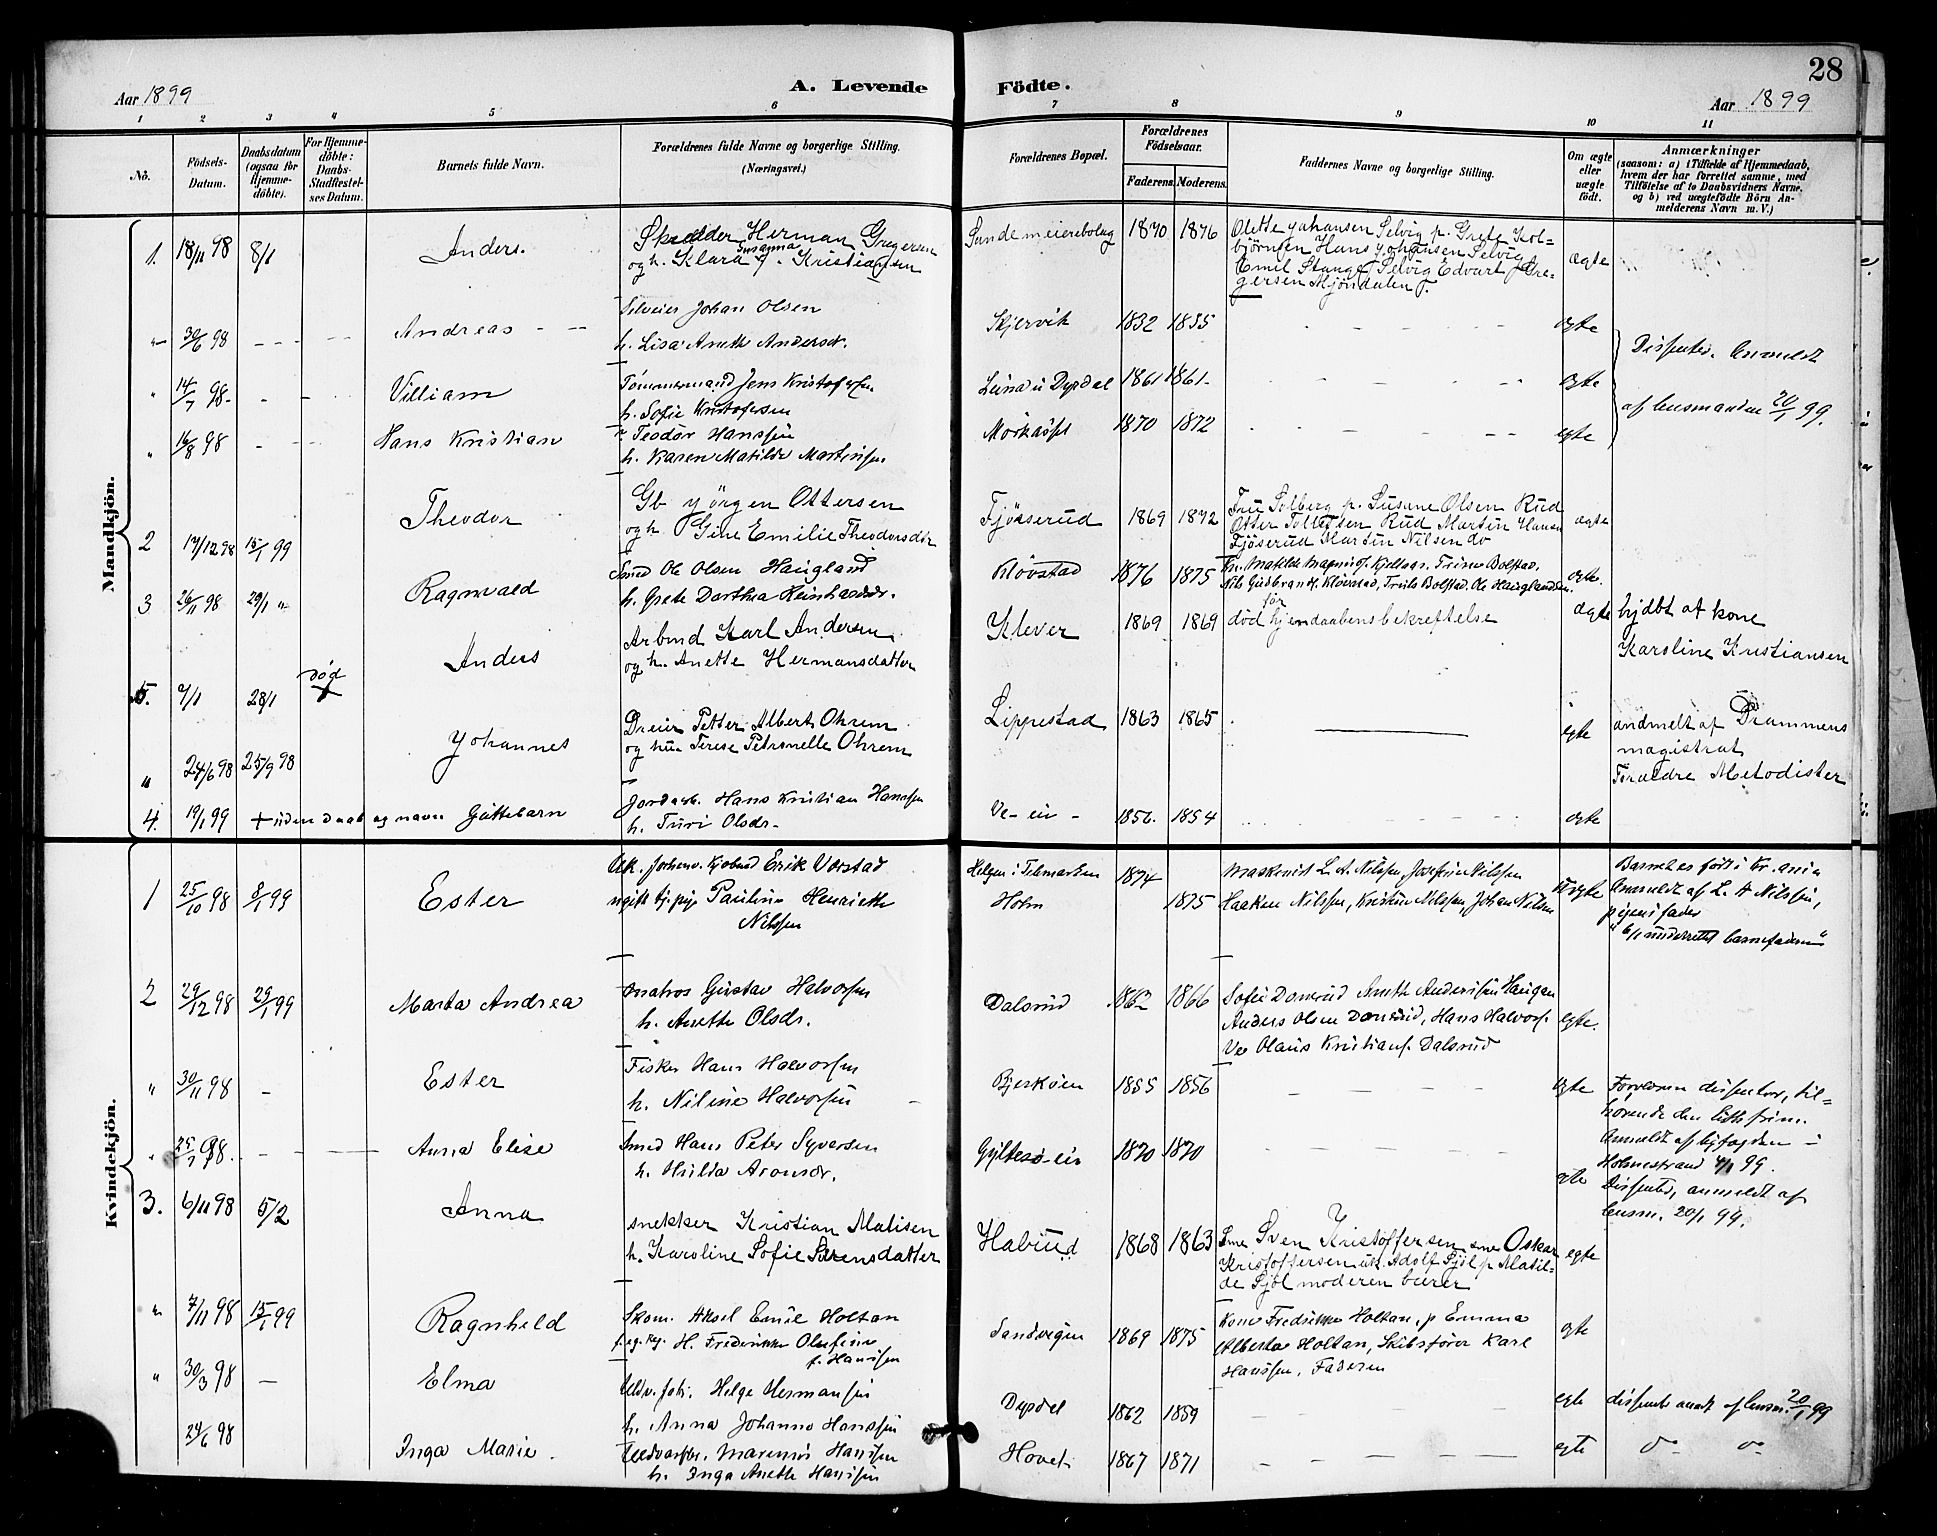 28
Aar 1899
A. Levende
Födte.
Aar 1899
1 2 3 4 5 6 7 8 9 10 11
No.
Födsels-
Datum.
Daabsdatum
(ogsaa for
Hjemme-
döbte).
For Hjemme-
döbte:
Daabs-
Stadfæstel-
ses Datum.
Barnets fulde Navn.
Forældrenes fulde Navne og borgerlige Stilling.
(Næringsvei.)
Forældrenes Bopæl.
Forældrenes
Födselsaar.
Faderens. Moderens.
Faddernes Navne og borgerlige Stilling.
Om ægte
eller
uægte
födt.
Anmærkninger
(saasom: a) i Tilfælde af Hjemmedaab,
hvem der har forrettet samme, med
Tilföielse af to Daabsvidners Navne,
og b) ved uægtefödte Börn An-
melderens Navn m. V.)
Mandkjön.
1. 18/11 98 8/1 Anders. Skrædder Herman Gregersen
og h. Klara Susanna f. Kristiansen
Sande meieribolag 1870 1876
Olette Johansen Selvig p. Grete Kol-
björnsen Hans Johansen Selvig
Emil Stange Selvig Edvart Gre-
gersen Mjöndalen
ægte
" 30/6 98 Andreas Selveier Johan Olsen
h. Lisa Anette Andersdr.
Skjervik 1832 1855 egte
Dissenter. Anmeldt
af lensmanden 20/1 99.
" 14/7 98 Villiam Tömmermand Jens Kristofersen
h. Sofie Kristofersen
Dypdal 1861 1861 egte
" 16/8 98 Hans Kristian Teodor Hanssen
h. Karen Matilde Martinsen
1870 1872 egte
2 17/12 98 15/1 99 Theodor Gb. Jörgen Ottersen
og h. Gine Emilie Theodorsdtr
Fjöserud 1869 1872
Fru Solberg p. Susane Olsen Rud
Otter Tollefsen Rud Martin Hansen
Fjöserud Martin Nilsen do
ægte
3 26/11 98 29/1 " Ragnvald Smed Ole Olsen Haugland
h. Grete Dorthea Reinhardsdr.
Klövstad 1876 1875
egte.
5. 7/1 28/1 död Anders Arbmd Karl Andersen
og h. Anette Hermansdatter
Klever 1869 1869
död för hjemdaabens bekreftelse
ægte
hjdbt af kone
Karoline Kristiansen
" 24/6 98 25/9 98 Johannes Dreier Petter Albert Ohrem
og hu Terese Petronelle Ohrem
Lippestad 1863 1865 egte
andmelt af Drammens
magistrat
Forældre Metodister
4. 19/1 99 + uden daab og navn Guttebarn Jordarb. Hans Kristian Hanssen
h. Turi Olsdr.
Ve-eie 1850. 1854 egte
Kvindekjön.
1 25/10 98 8/1 99 Ester Erik Værstad
ugift tj. pige Pauline Henriette
Nilssen
i Telemarken 1874
Holm 1875
Maskinist L. A. Nilssen, Josefine Nilssen
Haaken Nilssen, Kristine Nilssen, Johan Nilssen
Uegte
Barnet er født i Kr.ania
Anmeldt af L. A Nilssen,
pigens fader
2 29/12 98 29/1 99 Marta Andrea Matros Gustav Halvorsen
h. Anette Olsdr.
Dalsrud 1862 1866
Sofie Domrud Anette Anderssen Haugan
Anders Olsen Domrud, Hans Halvors.
Ve Olaus Kristians. Dalsrud
egte.
" 30/11 98 Ester Fisker Hans Halvorsen
h. Niline Halvorsen
Bjerkøien 1855 1856 egte
Forældrene dissentere, til-
hørende den luth. frim.
Anmeldt af byfogden i
Holmestrand 4/1 99.
" 25/7 98. Anna Elise Smed Hans Peter Syversen
h. Hulda Aronsdr.
Gyltesø-eie 1870 1870 egte
Dissenter, anmeldt af
lensm. 20/1 99.
3. 6/11 98 5/2 Anna snekker Kristian Matisen
h. Karoline Sofie Sörensdatter
Habiud 1868 1863
Sme Sven Kristoffersen sme Oskar
Kristoffersen uk. Adolf Sjöl p Matil-
de Sjöl moderen bærer
egte
" 7/11 98 15/1 99 Ragnhild Skom. Aksel Emil Holtan
H. Frederikke Olufine
f. Hanssen
Sandvigen 1869 1875
Kone Fredrikke Holtan, p Emma
Alberta Holtan, Skibsfører Karl
Hanssen, Faderen
egte
" 30/3 98 Elma Helge Hermansen
h. Anna Johanne Hanssen
Dypdal 1862 1859 egte
dissenter anm. af lensm. 20/1 99
24/6 98 Inga Marie. Uldvarefbr. Marenius Hanssen
h. Inga Anette Hanssen
Hovet 1867 1871 egte
do do